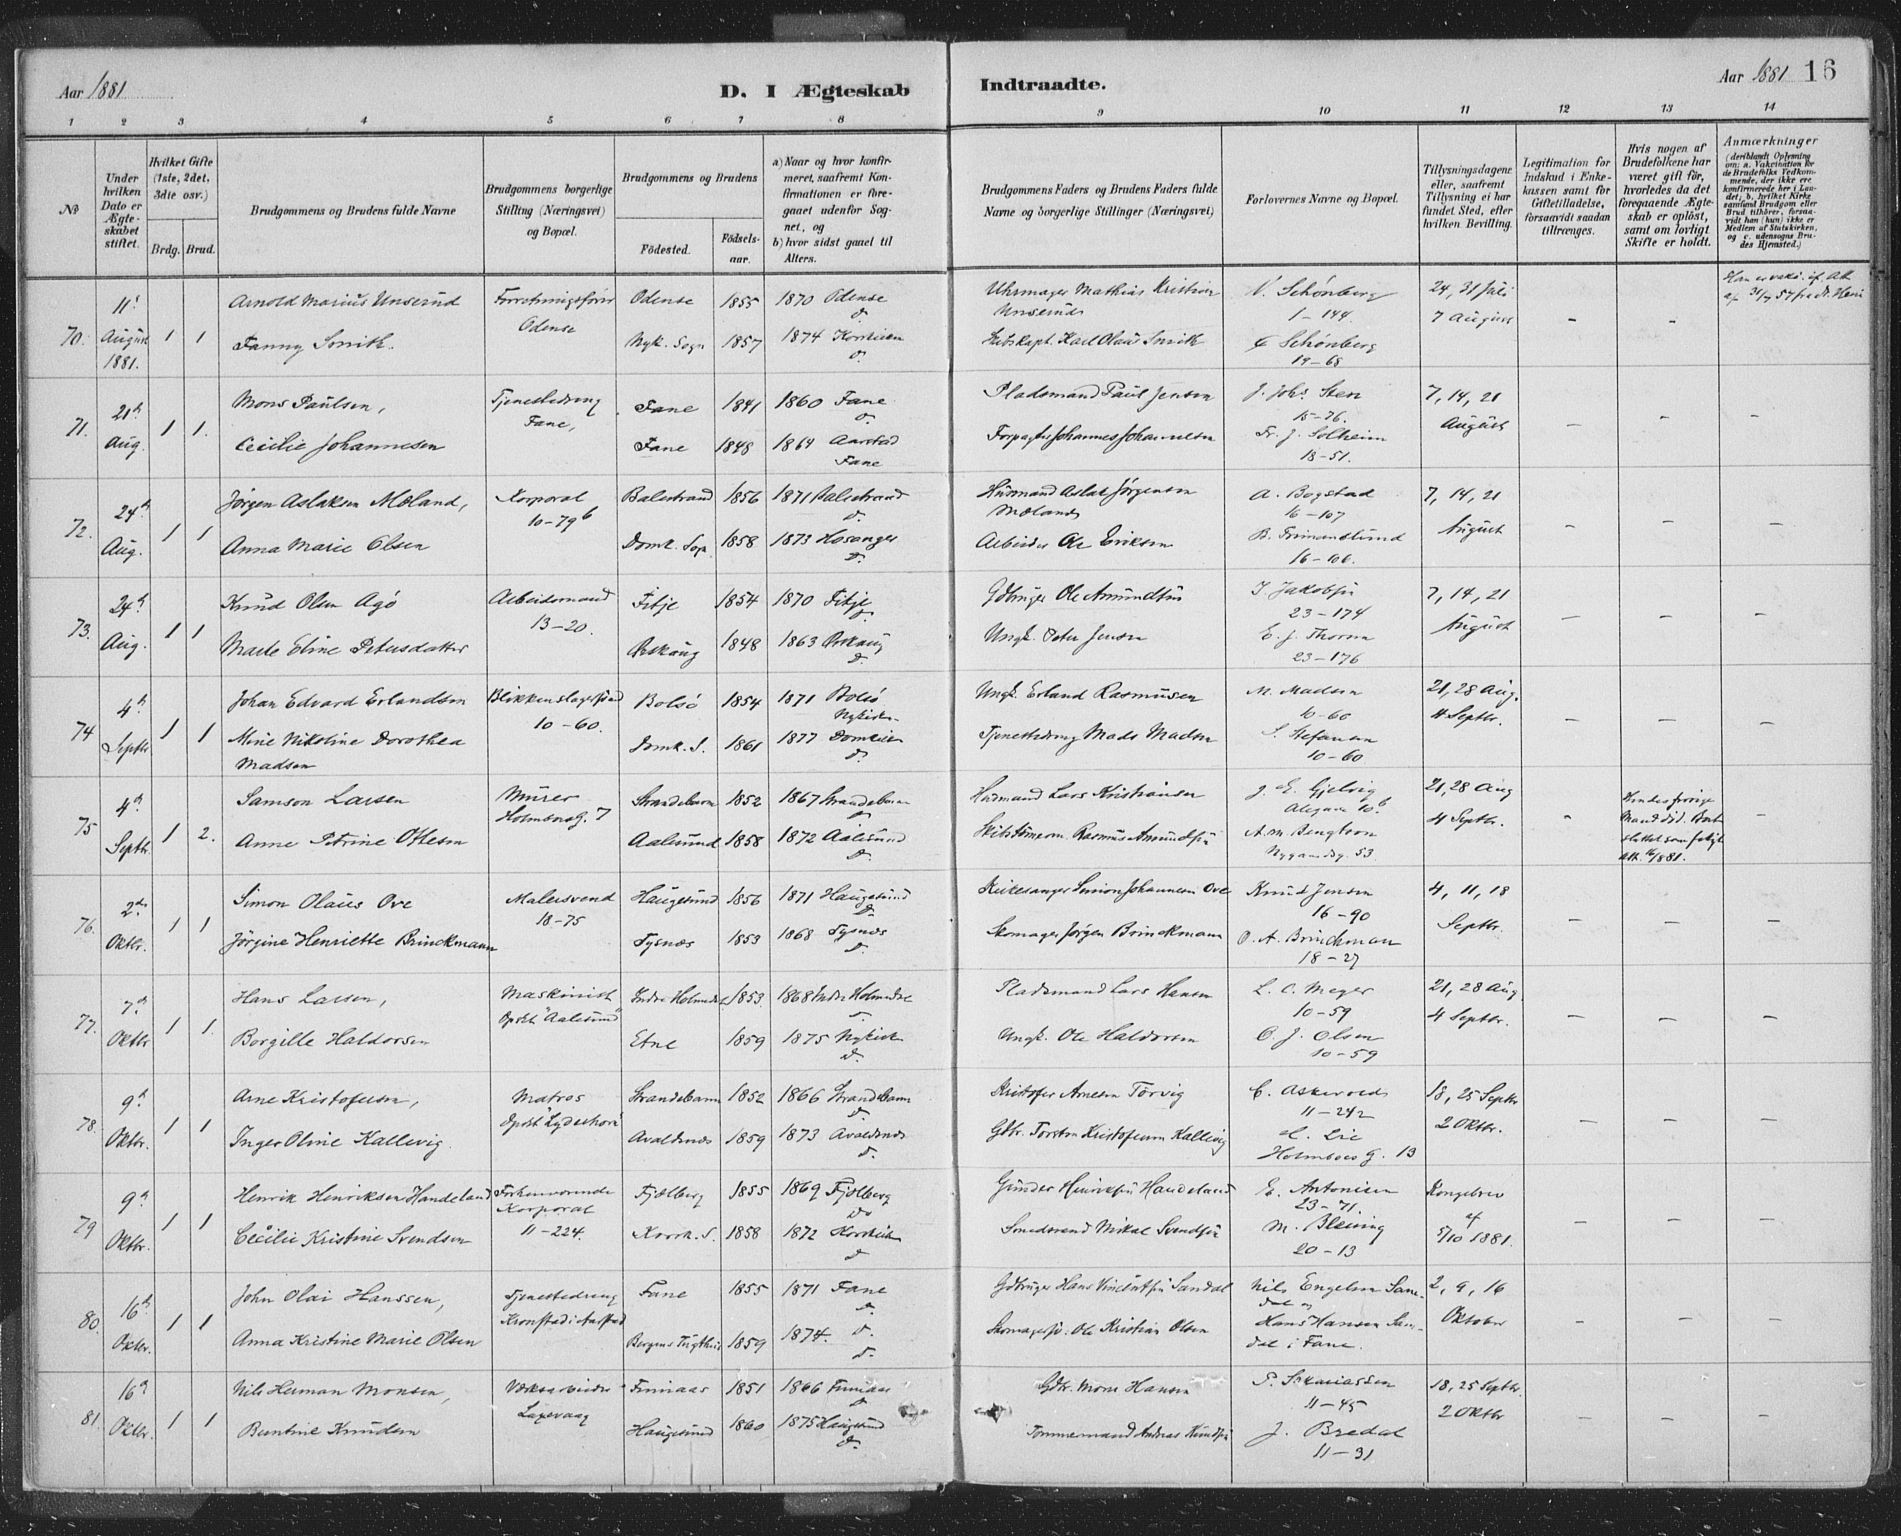 Aar 1881
D. I Ægteskab Indtraadte.
Aar 1881 16
1 2 3 4 5 6 7 8 9 10 11 12 13 14
№
Under hvilken Dato er Ægteskabet stiftet.
Hvilket Gifte (1ste, 2det, 3die osv.)
Brdg. Brud.
Brudgommens og Brudens fulde Navne
Brudgommens borgerlige Stilling (Næringsvei) og Bopæl.
Brudgommens og Brudens
Födested. Födsels-aar.
a) Naar og hvor konfirmeret, saafremt Konfirmationen er foregaaet udenfor Sognet, og
b) hvor sidst gaaet til Alters.
Brudgommens Faders og Brudens Faders fulde Navne og borgerlige Stillinger (Næringsvei)
Forlovernes Navne og Bopæl.
Tillysningsdagene eller, saafremt Tillysning ei har fundet Sted, efter hvilken Bevilling.
Legitimation for Indskud i Enkekassen samt for Giftetilladelse, forsaavidt saadan tiltrænges.
Hvis nogen af Brudefolkene har været gift för, hvorledes da det foregaaende Ægteskab er oplöst, samt om lovligt Skifte er holdt.
Anmærkninger
(deriblandt Oplysning om: a. Vakcination for de Brudefolks Vedkommende, der ikke ere konfirmerede her i Landet; b. hvilket Kirkesamfund Brudgom eller Brud tilhörer, forsaavidt han (hun) ikke er Medlem af Statskirken, og c. udensogns Brudes Hjemsted.)
70. 11' August 1881. 1 1
Arnold Marius Unserud Forretningsförer Odense Odense 1855 1870 Odense d. Uhrmager Mathias Kristian Unserud V. Schönberg 1-144. 24, 31 Juli 7 August - -
Fanny Smith. Nyk. Sogn 1857 1874 Korskirken d. Skibskapt. Karl Olaus Smith C Schönberg 19-68
71. 21d Aug. 1 1.
Mons Paulsen, Tjenestedreng Fane, Fane 1841 1860 Fane d. Pladsmand Paul Jensen J. Johs Sten 15-76. 7, 14, 21 August - - -
Cecilie Johannesen Fane 1848 1864 Aarstad Fane Forpagter Johannes Johannesen Fr. J. Solheim 18-51.
72. 24d Aug. 1 1
Jörgen Aslaksen Mæland, Korporal 10-79b Balestrand 1856 1871 Balestrand d. Husmand Aslak Jörgensen Mæland A. Bogstad 16-107 7, 14, 21 August - - -
Anna Marie Olsen Domk. Sogn 1858 1873 Hosanger d. Arbeider Ole Eriksen B. Frimanslund 16-106.
73. 24d Aug. 1 1
Knud Olsen Agö Arbeidsmand 13-20. Fitje 1854 1870 Fitje d. Gdbruger Ole Amundsen I. Jakobsen 23-174 7, 14, 21 August - - -
Marte Eline Petersdatter Askoug 1848 1863 Askoug d. Ungk. Peter Jensen E. J. Thorsen 23-176
74 4d Septbr 1 1
Johan Edvard Erlandsen Blikkenslagersvend 10-60. Bolsö 1854 1871 Bolsö Nykirk. Ungk. Erland Rasmusen M. Madsen 10-60 21, 28 Aug. 4 Septbr. - - -
Mine Nikoline Dorothea Madsen Domk. S. 1861 1877 Domkirken d. Tjenestedreng Mads Madsen S. Stefansen 10-60
75 4d Septbr. 1 2.
Samson Larsen Murer HolmboesG. 7 Strandebarm 1852 1867 Strandebarm d. Husmand Lars Kristiansen J. E. Gjelvig 21, 28 Aug 4 Septbr. - Hendes forrige Mand -
Anne Petrine Oftesen Aalesund 1858 1872 Aalesund d. Skibstömmerm. Rasmus Amundsen A. M. Bengtson Nygaardsg. 53.
76. 2d Oktbr. 1 1
Simon Olaus Ove Malersvend 18-75 Haugesund 1856 1871 Haugesund d. Kirkesanger Simon Johannesen Ove Knud Jensen 16-90 4, 11, 18 Septbr. - - -
Jörgine Henriette Brinckmann Tysnæs 1853 1868 Tysnæs d. Skomager Jörgen Brinckmann O. A. Brinckman 18-27
77. 7d Oktbr 1 1.
Hans Larsen, Maskinist Dpsk "Aalesund" Indre Holmedal 1853 1868 Indre Holmedal d. Pladsmand Lars Hansen L. C. Meyer 10-59 21, 28 Aug 4 Septbr. - - -
Borgille Haldorsen Etne 1859 1875 Nykirken d. Ungk. Ole Haldorsen O. J. Olsen 10-59
78. 9d Oktbr. 1 1
Arne Kristofersen, Matros Dpsk "Lyderhorn" Strandebarm 1852 1866 Strandebarm d. Kristofer Arnesen Torvig C. Askevold 11-242 18, 25 Septbr 2 Oktbr. - - -
Inger Oline Kallevig. Avaldsnæs 1859 1873 Avaldsnæs d. Gdbr. Torsten Kristofersen Kallevig H. Lie Holmboes G. 13
79 9d Oktbr. 1 1
Henrik Henriksen Handeland Forhenværende Korporal 11-224. Fjælberg 1855 1869 Fjælberg do Gunder Henriksen Handeland E. Antonisen 23-71. Kongebrev af 5/10 1881. - - -
Cecilie Kristine Svendsen Korsk. S. 1858 1872 Korskirken d. Smedsvend Mikal Svendsen M. Blening 20-13
80. 16d Oktbr. 1 1
John Olai Hanssen, Tjenestedreng Kronstad i Aarstad Fane 1855 1871 Fane d. Gdbruger Hans Vincentsen Sandal Nils Engelsen Sandal og 2, 9, 16 Oktober - - -
Anna Kristine Marie Olsen Bergens Tugthus 1859 1874. d. d. Skomagersv. Ole Kristian Olsen Hans Hansen Sandal i Fane.
81. 16d Oktbr. 1 1
Nils Herman Monsen, Værksarbeider Laxevaag Finnaas 1851 1866 Finnaas d. Gdbr. Mons Hansen P. Sakariassen 11-45 18, 25 Septbr. 2 Oktbr - - -
Berntine Knudsen Haugesund 1860 1875 Haugesund d. Tömmermand Andreas Knudsen J. Bredal 11-31